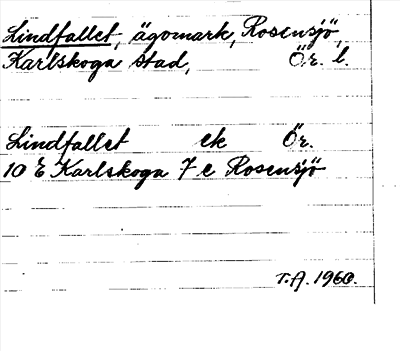 Lindfallet, ägomark, Rosensjö,
Karlskoga stad, Ör. l.
Lindfallet ek Ör.
10 E Karlskoga 7 e Rosensjö
T.A. 1960.